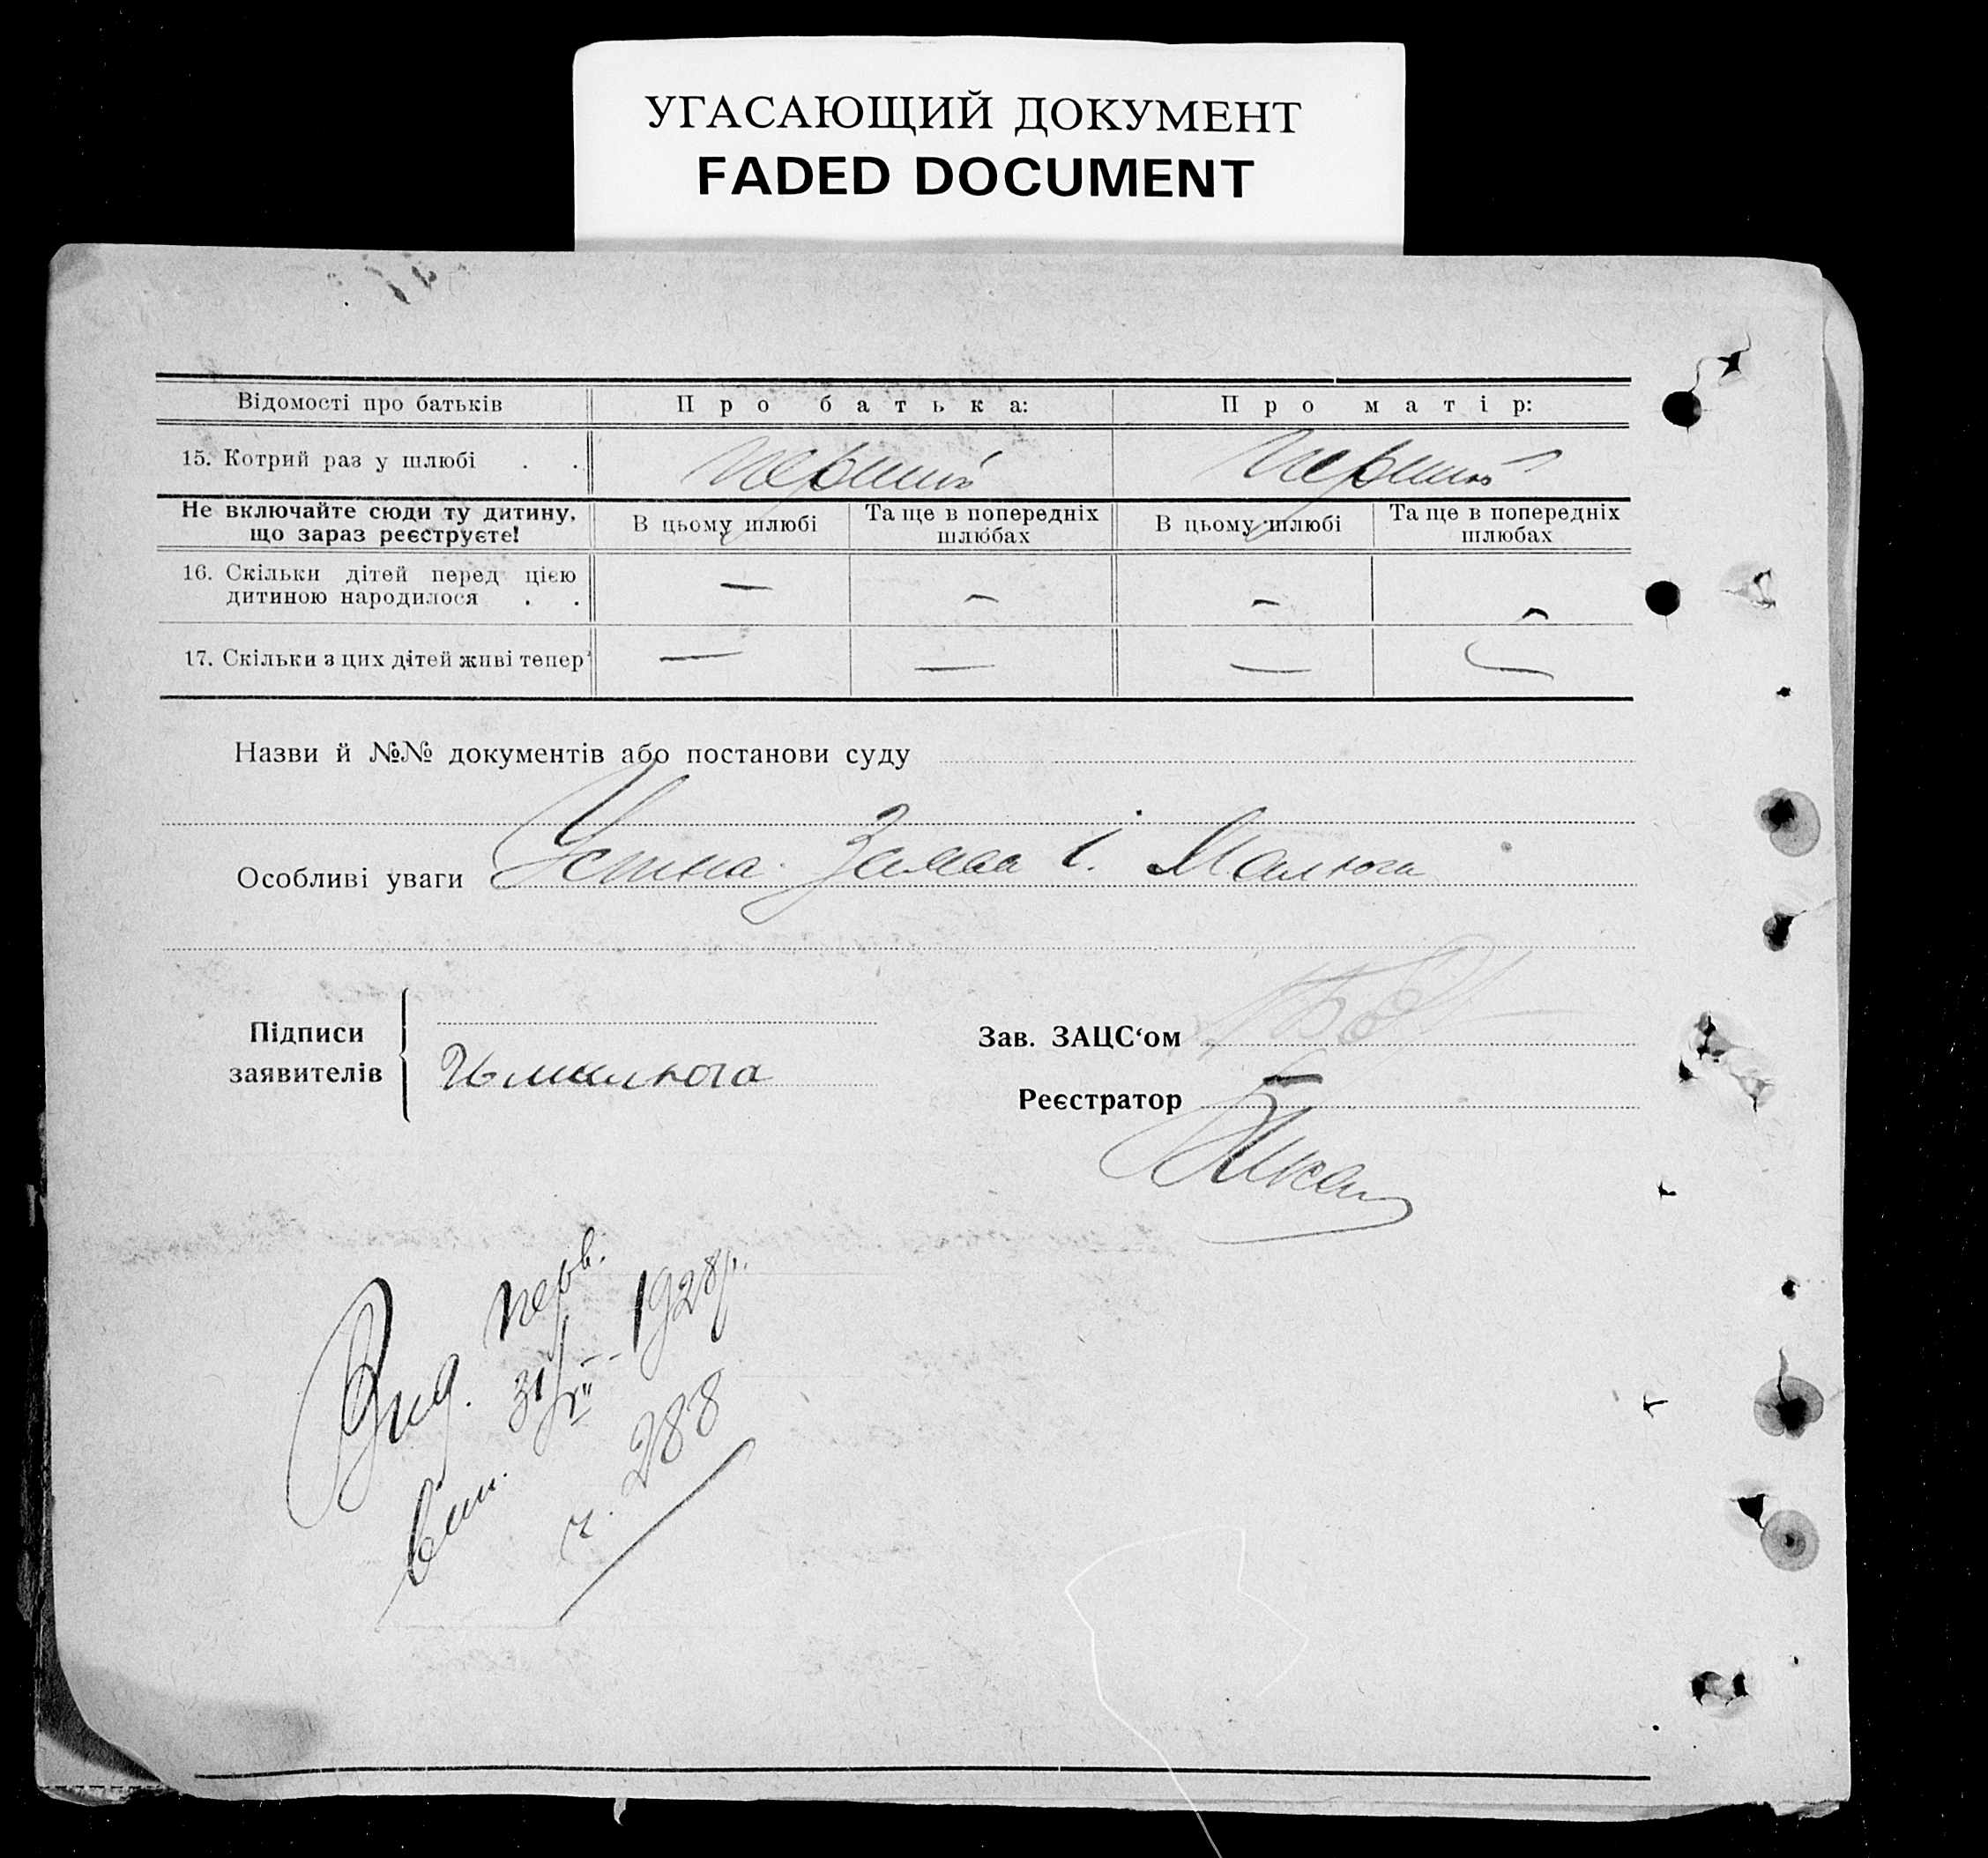 УГАСАЮЩИЙ ДОКУМЕНТ
FADED DOCUMENT
Відомості про батьків Про батька: Про матір:
15. Котрий раз у шлюбі . . перший перший
Не включайте сюди ту дитину, що зараз реєструєте! В цьому шлюбі Та ще в попередніх шлюбах В цьому шлюбі Та ще в попередніх шлюбах
16. Скільки дітей перед цією
дитиною народилося . . — — — —
17. Скільки з цих дітей живі тепер — — — —
Назви й №№ документів або постанови суду
Особливі уваги Устна Заява І. Малюга
Підписи
заявителів
Зав. ЗАЦС‘ом
Реєстратор
Вид. перв.
вип. 31/III 1928р.
ч. 288